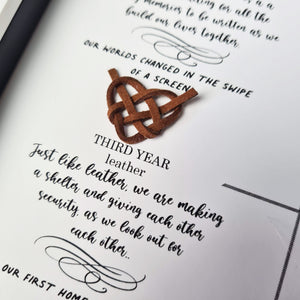 for all the
memories to be written as we
build our lives together.
OUR WORLDS CHANGED IN THE SWIPE
OF A SCREEN
THIRD YEAR
leather
Just like leather, we are making
a shelter and giving each other
security, as we look out for
each other..
OUR FIRST HOME